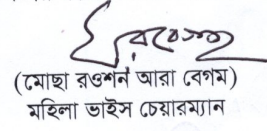 (মোছা রওশন আরা বেগম)
মহিলা ভাইস চেয়ারম্যান